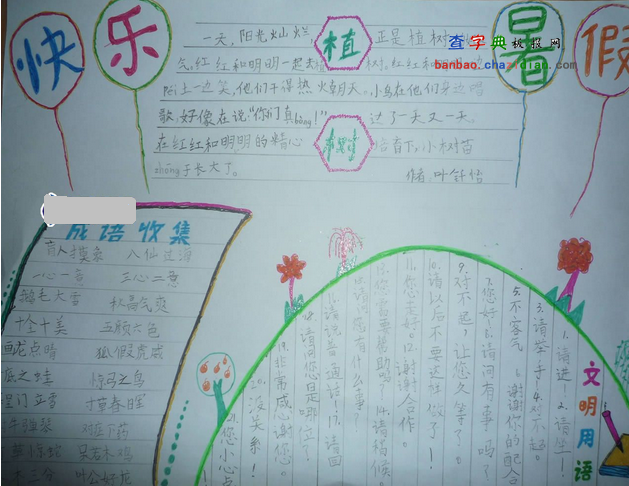 快乐暑假
查字典板报网
banbao.chazidian.com
植树
一天,阳光灿烂,正是植树
气,红红和明明一起去 树,红红和
pēi土一边笑,他们干得热火朝天。小鸟在他们身边唱
歌,好像在说“你们真bàng!” 过了一天又一天。
在红红和明明的精心 培育下,小树苗
zhōng于长大了。 作者:叶舒怡
成语收集
盲人摸象 八仙过海
一心一意 三心二意
鹅毛大雪 秋高气爽
十全十美 五颜六色
画龙点睛 狐假虎威
底之蛙 惊弓之鸟
程门立雪
牛弹琴 对症下药
呆若木鸡
木三分 叶公好龙
文明用语
1.请进!2.请坐!
3.请举手4.对不起。
5.不客气 6.谢谢你的配合
7.您好8.请问有事吗?
9.对不起,让您久等了。
10.请以后不要这样做了!
11.您走好。12.谢谢合作。
13.您需要帮助吗?14.请稍候。
15.请问您有什么事?
16.请说普通话!17.请回
18.请问您是哪位?
19.非常感谢您。
20.没关系!
21.您小心点